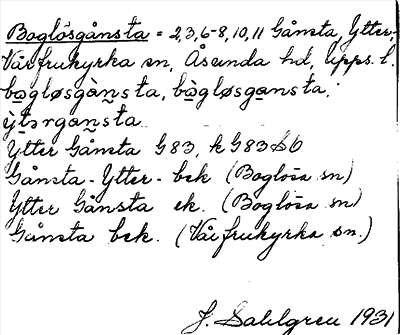 Boglösgånsta = 2,3,6-8,10,11 Gånsta, Ytter-,
Vårfrukyrka sn, Åsunda hd, Upps. l.
bo̲gløsgàn̰sta, bò̲gløsga̲nsta,
ỳt̲ərgan̰sta
Ytter Gånsta G83, k G83 SO
Gånsta - Ytter - bek (Boglösa sn)
Ytter Gånsta ek. (Boglösa sn)
Gånsta bek. (Vårfrukyrka sn.)
J. Sahlgren 1931